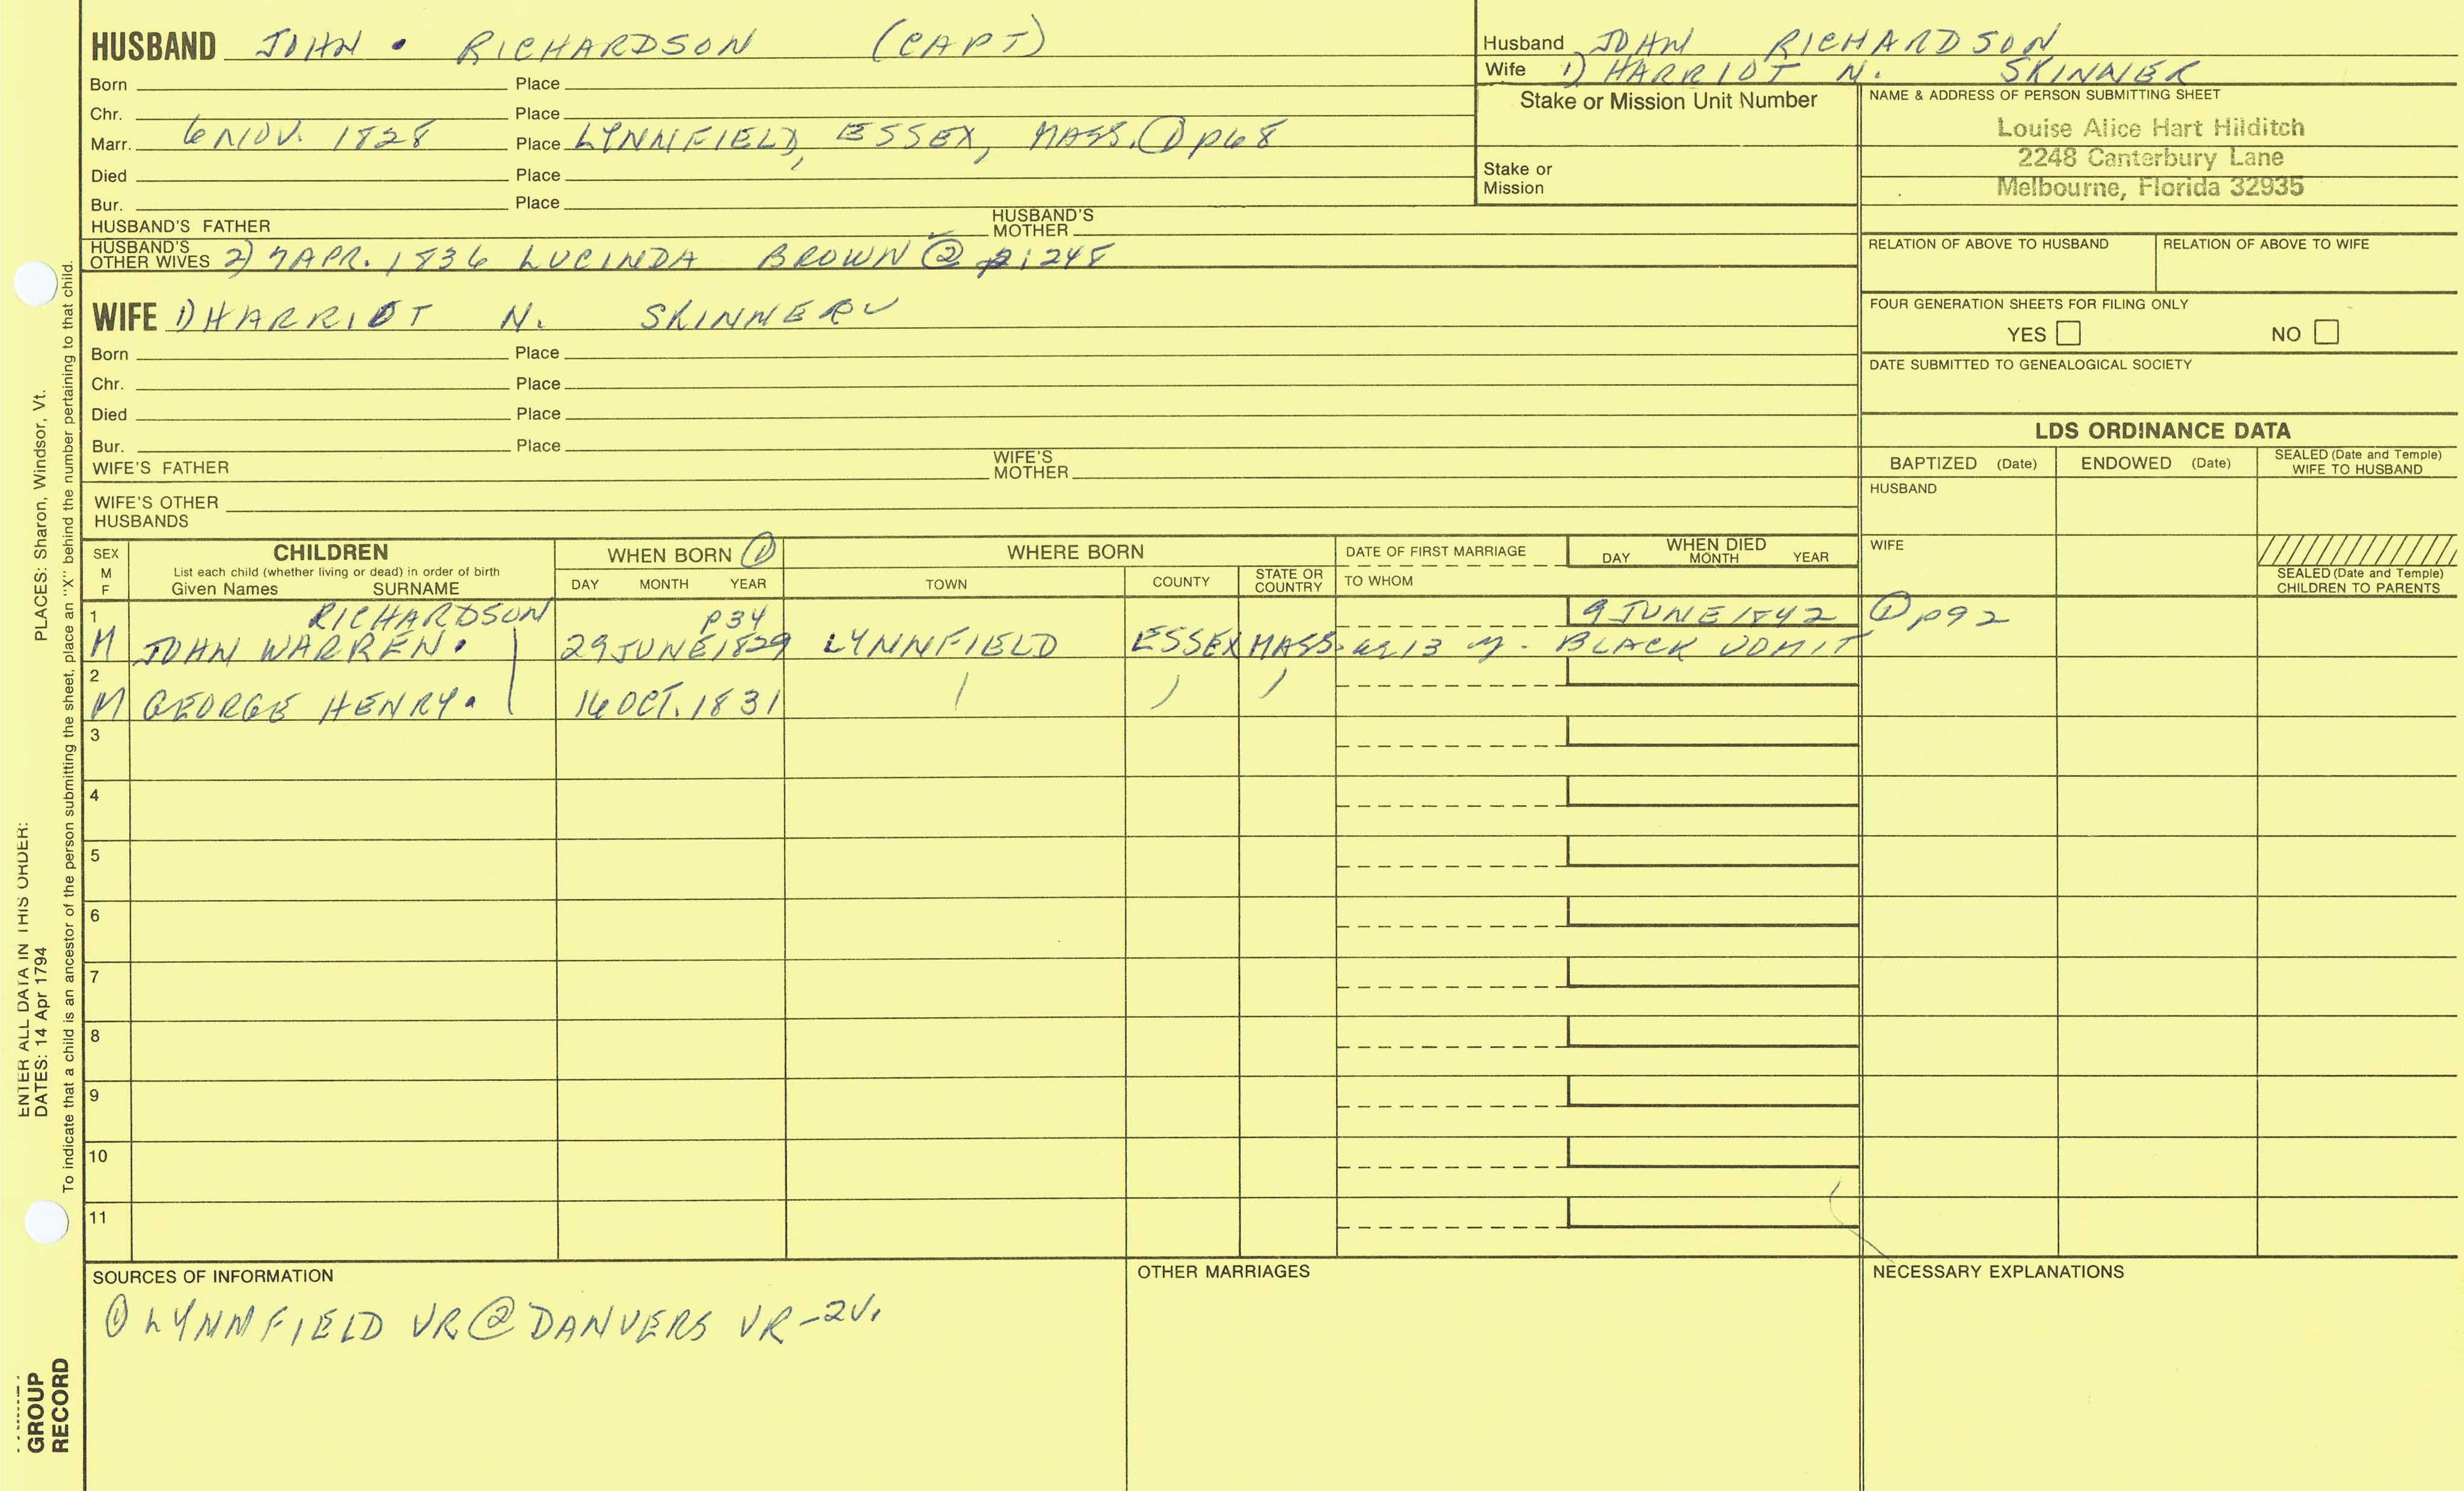 HUSBAND JOHN • RICHARDSON (CAPT)
Born Place
Chr. Place
Marr. 6 NOV. 1828 Place LYNNFIELD, ESSEX, MASS. ① p68
Died Place
Bur. Place
HUSBAND'S FATHER HUSBAND'S MOTHER
HUSBAND'S OTHER WIVES 2) 7 APR. 1836 LUCINDA BROWN ② 2:248
WIFE 1) HARRIOT N. SKINNER ✓
Born Place
Chr. Place
Died Place
Bur. Place
WIFE'S FATHER WIFE'S MOTHER
WIFE'S OTHER HUSBANDS
Husband JOHN RICHARDSON
Wife 1) HARRIOT N. SKINNER
Stake or Mission Unit Number
Stake or Mission
NAME & ADDRESS OF PERSON SUBMITTING SHEET
Louise Alice Hart Hilditch
2248 Canterbury Lane
Melbourne, Florida 32935
RELATION OF ABOVE TO HUSBAND RELATION OF ABOVE TO WIFE
FOUR GENERATION SHEETS FOR FILING ONLY
YES NO
DATE SUBMITTED TO GENEALOGICAL SOCIETY
LDS ORDINANCE DATA
BAPTIZED (Date) ENDOWED (Date) SEALED (Date and Temple) WIFE TO HUSBAND
HUSBAND
WIFE
SEALED (Date and Temple) CHILDREN TO PARENTS
SEX M F
CHILDREN
List each child (whether living or dead) in order of birth
Given Names SURNAME
WHEN BORN ①
DAY MONTH YEAR
WHERE BORN
TOWN COUNTY STATE OR COUNTRY
DATE OF FIRST MARRIAGE
TO WHOM
WHEN DIED
DAY MONTH YEAR
1 RICHARDSON p34 9 JUNE 1842 ① p92
M JOHN WARREN. 29 JUNE 1829 LYNNFIELD ESSEX MASS. 13 y. BLACK VOMIT
2
M GEORGE HENRY. 16 OCT. 1831
3
4
5
6
7
8
9
10
11
SOURCES OF INFORMATION
① LYNNFIELD VR ② DANVERS VR - 2V.
OTHER MARRIAGES
NECESSARY EXPLANATIONS
ENTER ALL DATA IN THIS ORDER:
DATES: 14 Apr 1794 PLACES: Sharon, Windsor, Vt.
To indicate that a child is an ancestor of the person submitting the sheet, place an "X" behind the number pertaining to that child.
GROUP
RECORD